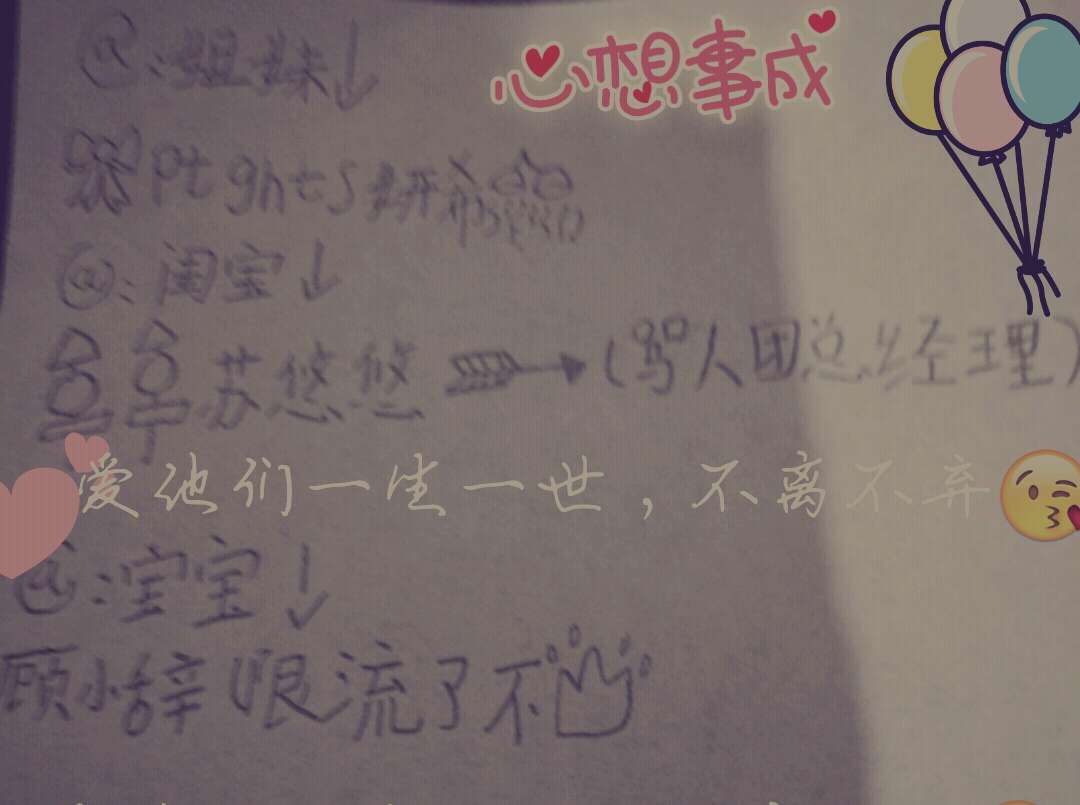 @:姐妹↓
心想事成
Pt ghts
@:淘宝↓
苏悠悠 → (骂人团总经理)
爱他们一生一世，不离不弃
@:宝宝↓
顾小辞 眼流了不